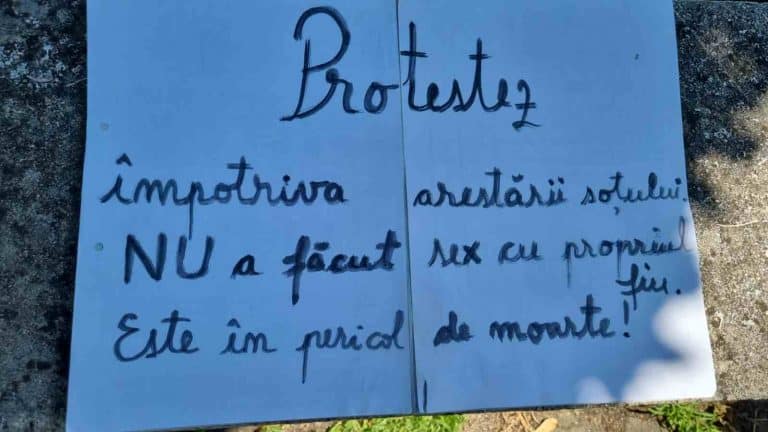 Protestez
împotriva arestării soțului.
NU a făcut sex cu propriul
fiu.
Este în pericol de moarte!